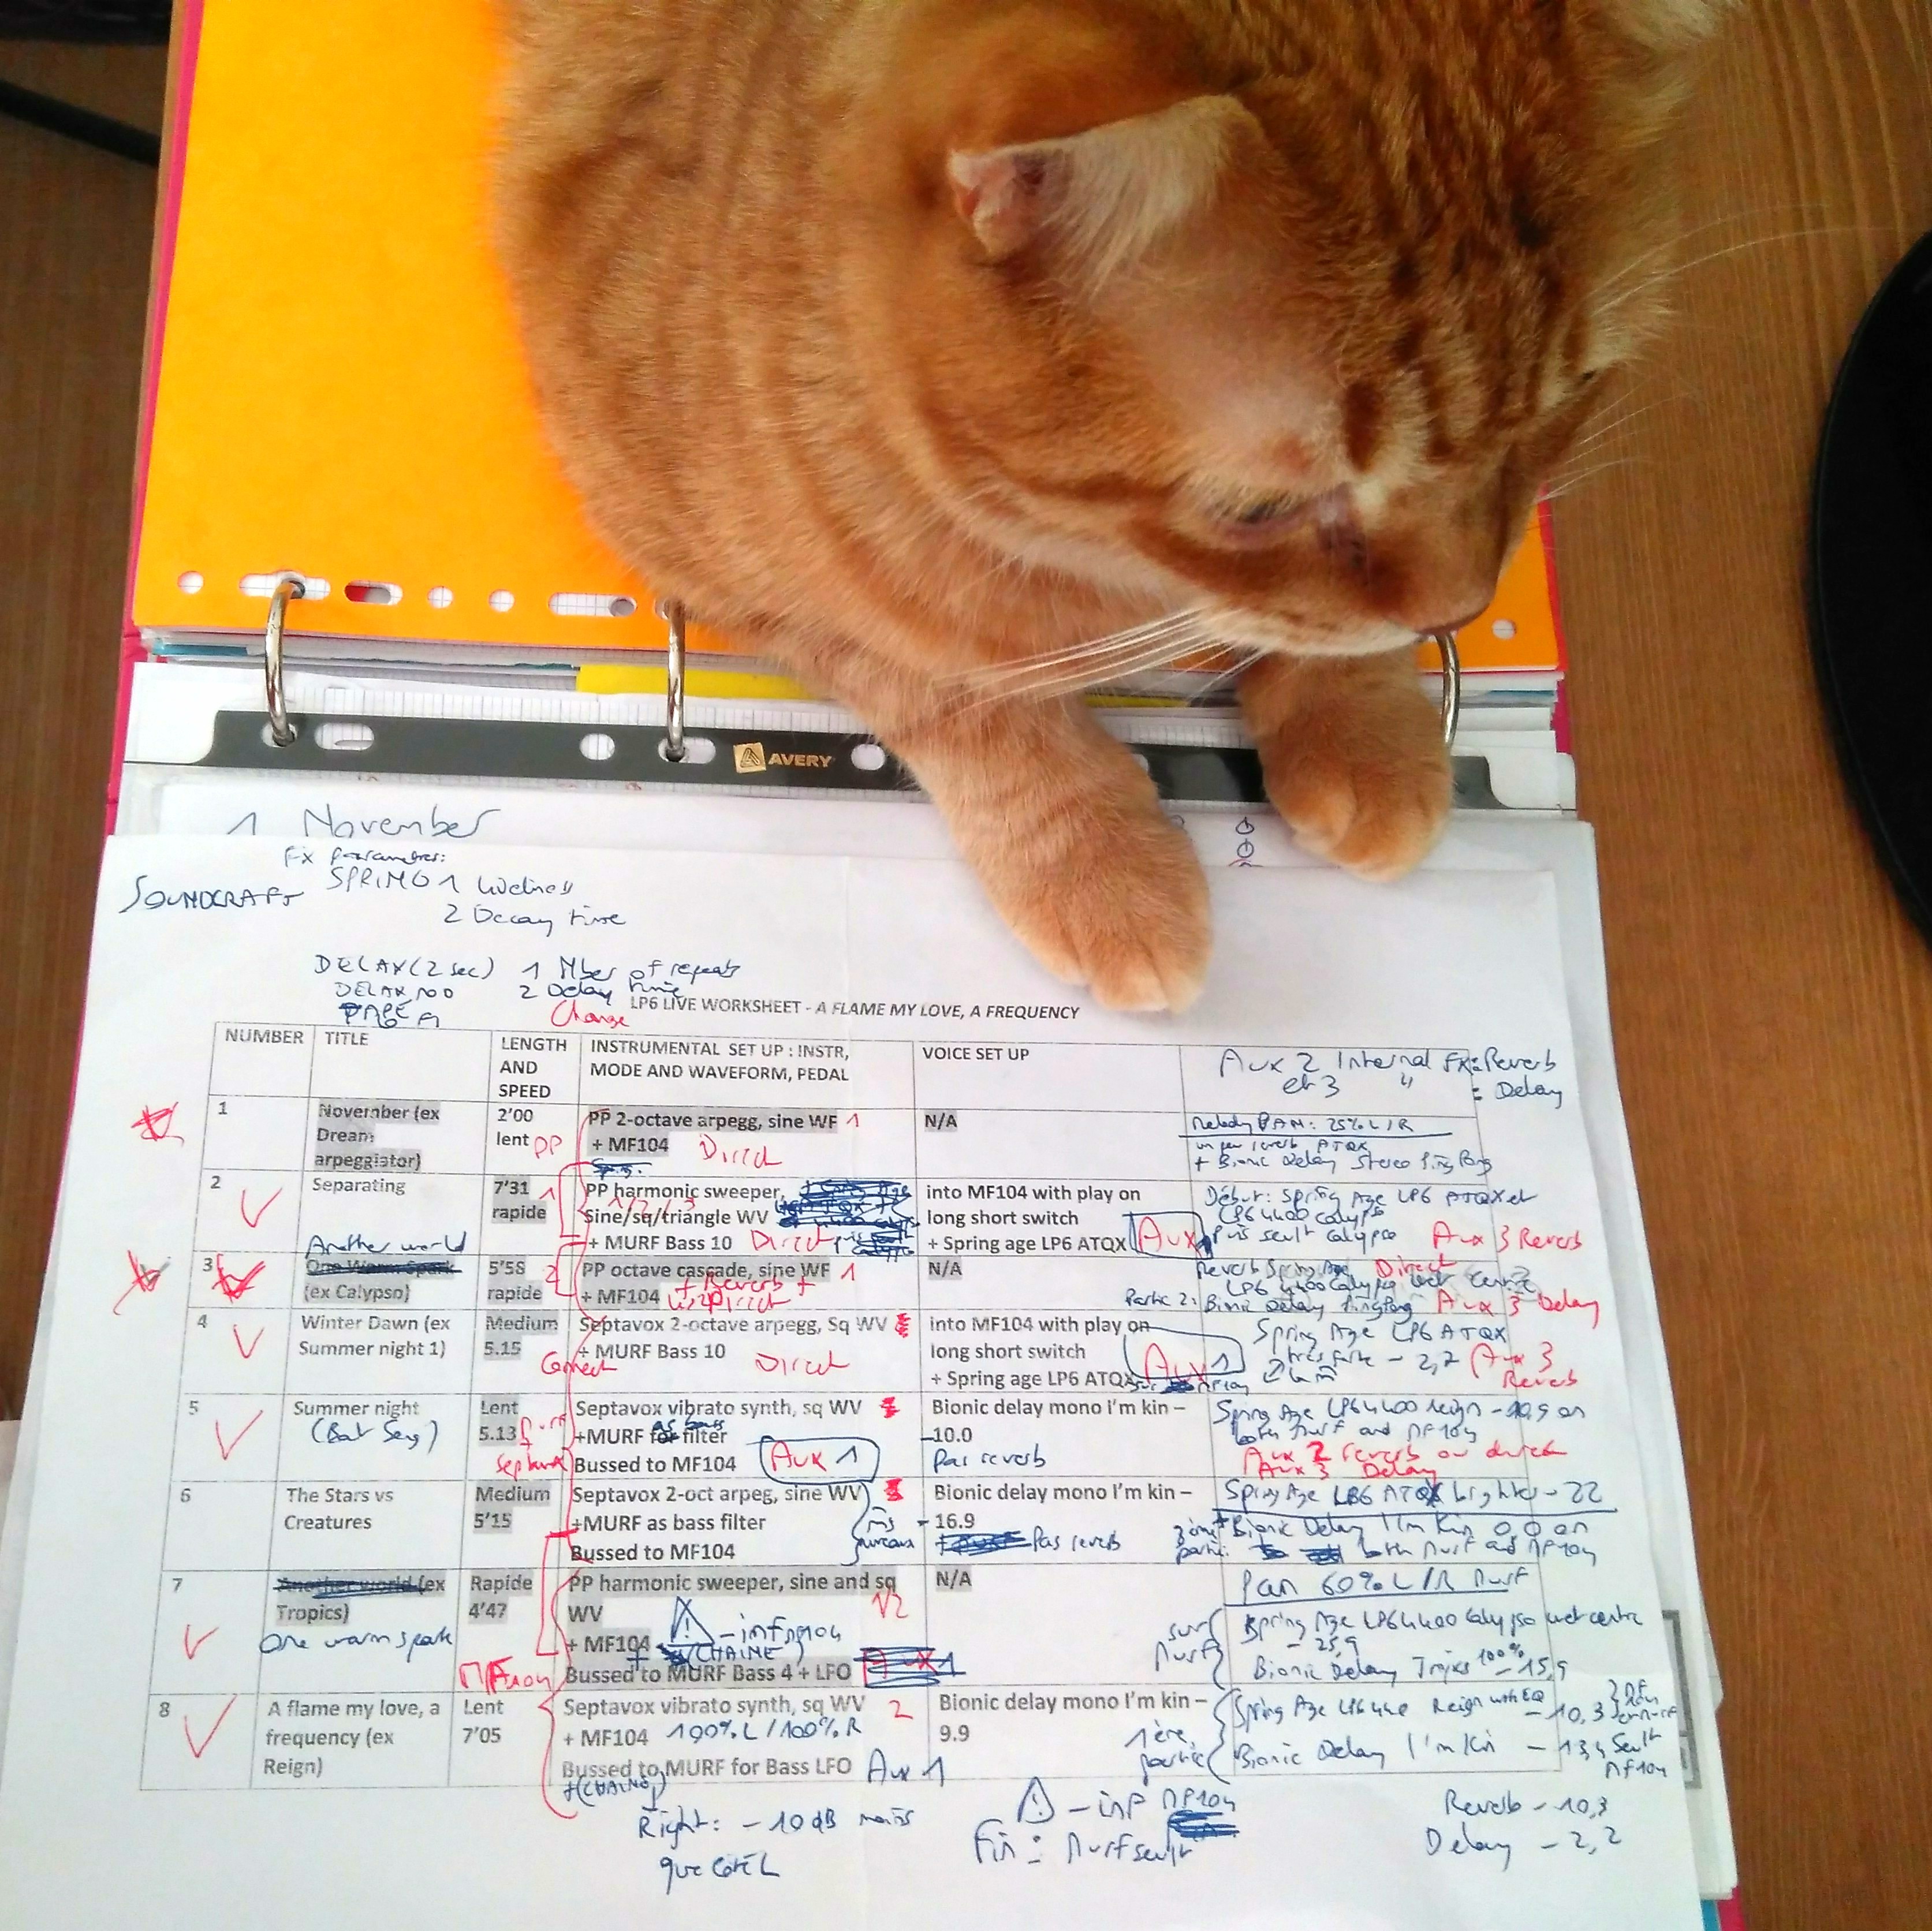 AVERY
1 November
FX Parameters:
SOUNDCRAFT SPRING 1 Liveliness
2 Decay time
DELAY (2 sec) 1 Nber of repeats
DELAY 2 Delay time
TAPE
Change
LP6 LIVE WORKSHEET - A FLAME MY LOVE, A FREQUENCY
NUMBER
TITLE
LENGTH
AND
SPEED
INSTRUMENTAL SET UP : INSTR,
MODE AND WAVEFORM, PEDAL
VOICE SET UP
Aux 2 Internal FX = Reverb
et 3 " = Delay
1
November (ex
Dream
arpeggiator)
2'00
lent PP
PP 2-octave arpegg, sine WF 1
+ MF104 Direct
N/A
Melody PAN: 25% L/R
un peu reverb ATQX
+ Bionic Delay Stereo Ping Pong
2
Separating
7'31 1
rapide
PP harmonic sweeper,
1/2/3
Sine/sq/triangle WV
+ MURF Bass 10 Direct
into MF104 with play on
long short switch
+ Spring age LP6 ATQX Aux 1
Début: Spring Age LP6 ATQX et
LP6 4400 Calypso
Puis seult Calypso Aux 3 Reverb
3
Another world
One Warm Spark
(ex Calypso)
5'58 2
rapide
PP octave cascade, sine WF 1
+ MF104 + Reverb +
Direct
N/A
Reverb Spring Age Direct
LP6 4400 Calypso wet centre
Partie 2: Bionic Delay PingPong Aux 3 Delay
4
Winter Dawn (ex
Summer night 1)
Medium
5.15
Connect
Septavox 2-octave arpegg, Sq WV
+ MURF Bass 10 Direct
into MF104 with play on
long short switch
+ Spring age LP6 ATQX Aux 1
Spring Age LP6 ATQX
très faible - 2,2 Aux 3
Reverb
5
Summer night
(Bat Song)
Lent
5.13 Murf
+
Septavox
Septavox vibrato synth, sq WV
+MURF as bass filter
Bussed to MF104 Aux 1
Bionic delay mono I'm kin –
-10.0
Pas reverb
Spring Age LP6 4400 Reign - 10,9 on
both Murf and MF104
Aux 2 reverb ou direct
Aux 3 Delay
6
The Stars vs
Creatures
Medium
5'15
Septavox 2-oct arpeg, sine WV
+MURF as bass filter
Bussed to MF104
Bionic delay mono I'm kin –
- 16.9
Pas reverb
Spring Age LP6 ATQX brighter - 22
2ème partie: + Bionic Delay I'm Kin 0,0 on
both Murf and MF104
7
Another world (ex
Tropics)
One warm spark
Rapide
4'47
MF104
PP harmonic sweeper, sine and sq
WV 1/2
+ MF104 - inf MF104
(CHAINE)
Bussed to MURF Bass 4 + LFO Aux 1
N/A
Pan 60% L/R Murf
sur Murf
Spring Age LP6 4400 Calypso wet centre
- 25,9
Bionic Delay Tropics 100% - 15,9
8
A flame my love, a
frequency (ex
Reign)
Lent
7'05
Septavox vibrato synth, sq WV 2
+ MF104 100% L / 100% R
Bussed to MURF for Bass LFO Aux 1
+ (CHAINE)
Bionic delay mono I'm kin –
9.9
1ère partie
Spring Age LP6 4400 Reign with EQ
- 10,3
Bionic Delay I'm Kin - 13,4 Seult
MF104
Right: - 10 dB moins
que côté L
- inf MF104
Fin: Murf seult
Reverb - 10,3
Delay - 2,2